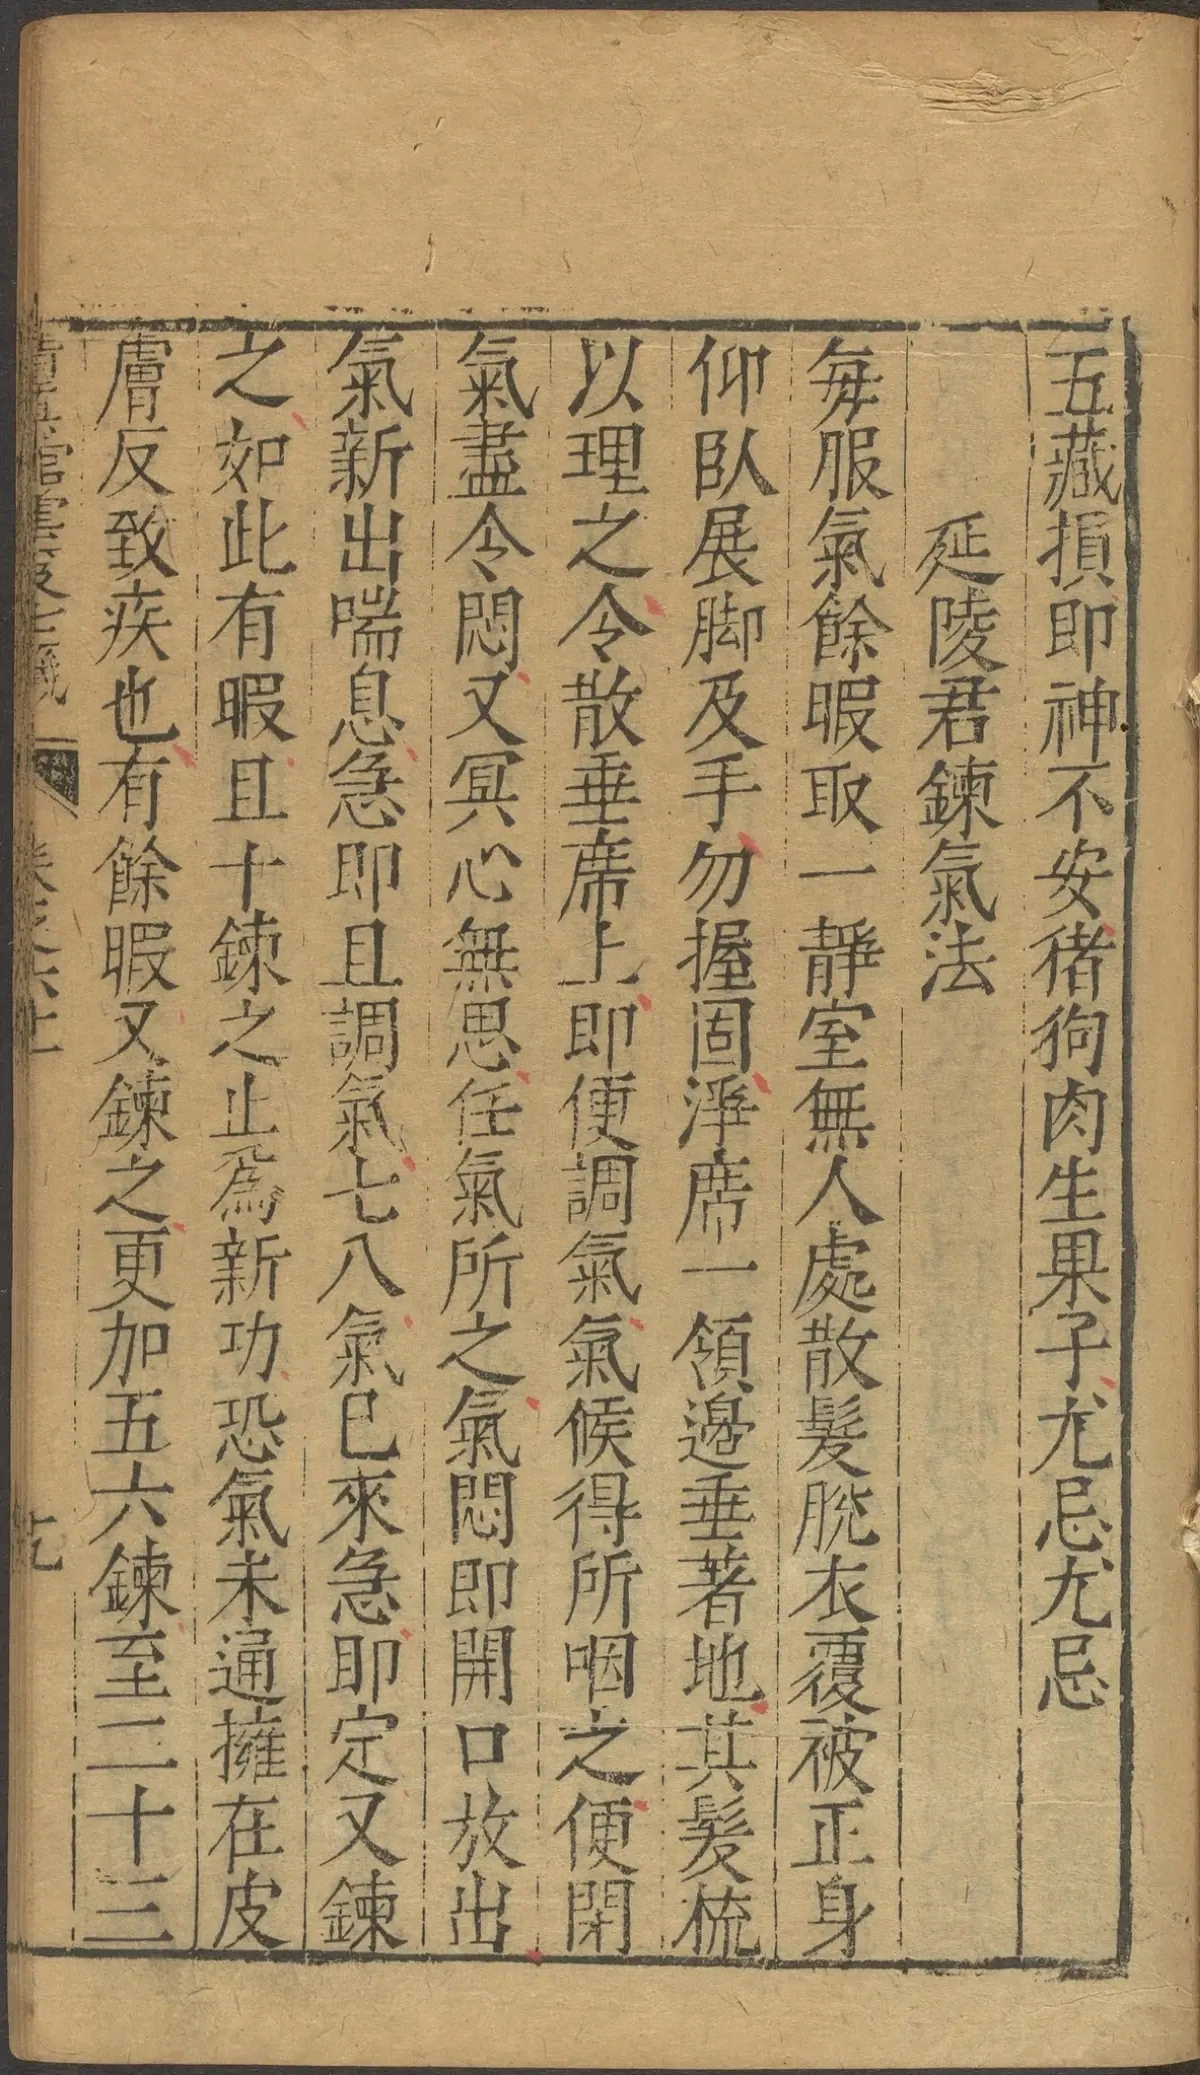 五藏損即神不安猪狗肉生果子尤忌尤忌
延陵君鍊氣法
每服氣餘暇取一靜室無人處散髮脫衣覆被正身
仰臥展脚及手勿握固淨席一領邊垂著地其髮梳
以理之令散垂席上即便調氣氣候得所咽之便閉
氣盡令悶又冥心無思任氣所之氣悶即開口放出
氣新出喘息急即且調氣七八氣已來急即定又鍊
之如此有暇且十鍊之止爲新功恐氣未通擁在皮
膚反致疾也有餘暇又鍊之更加五六鍊至二十三